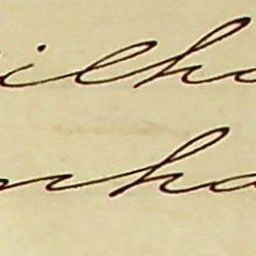 ilho
nha